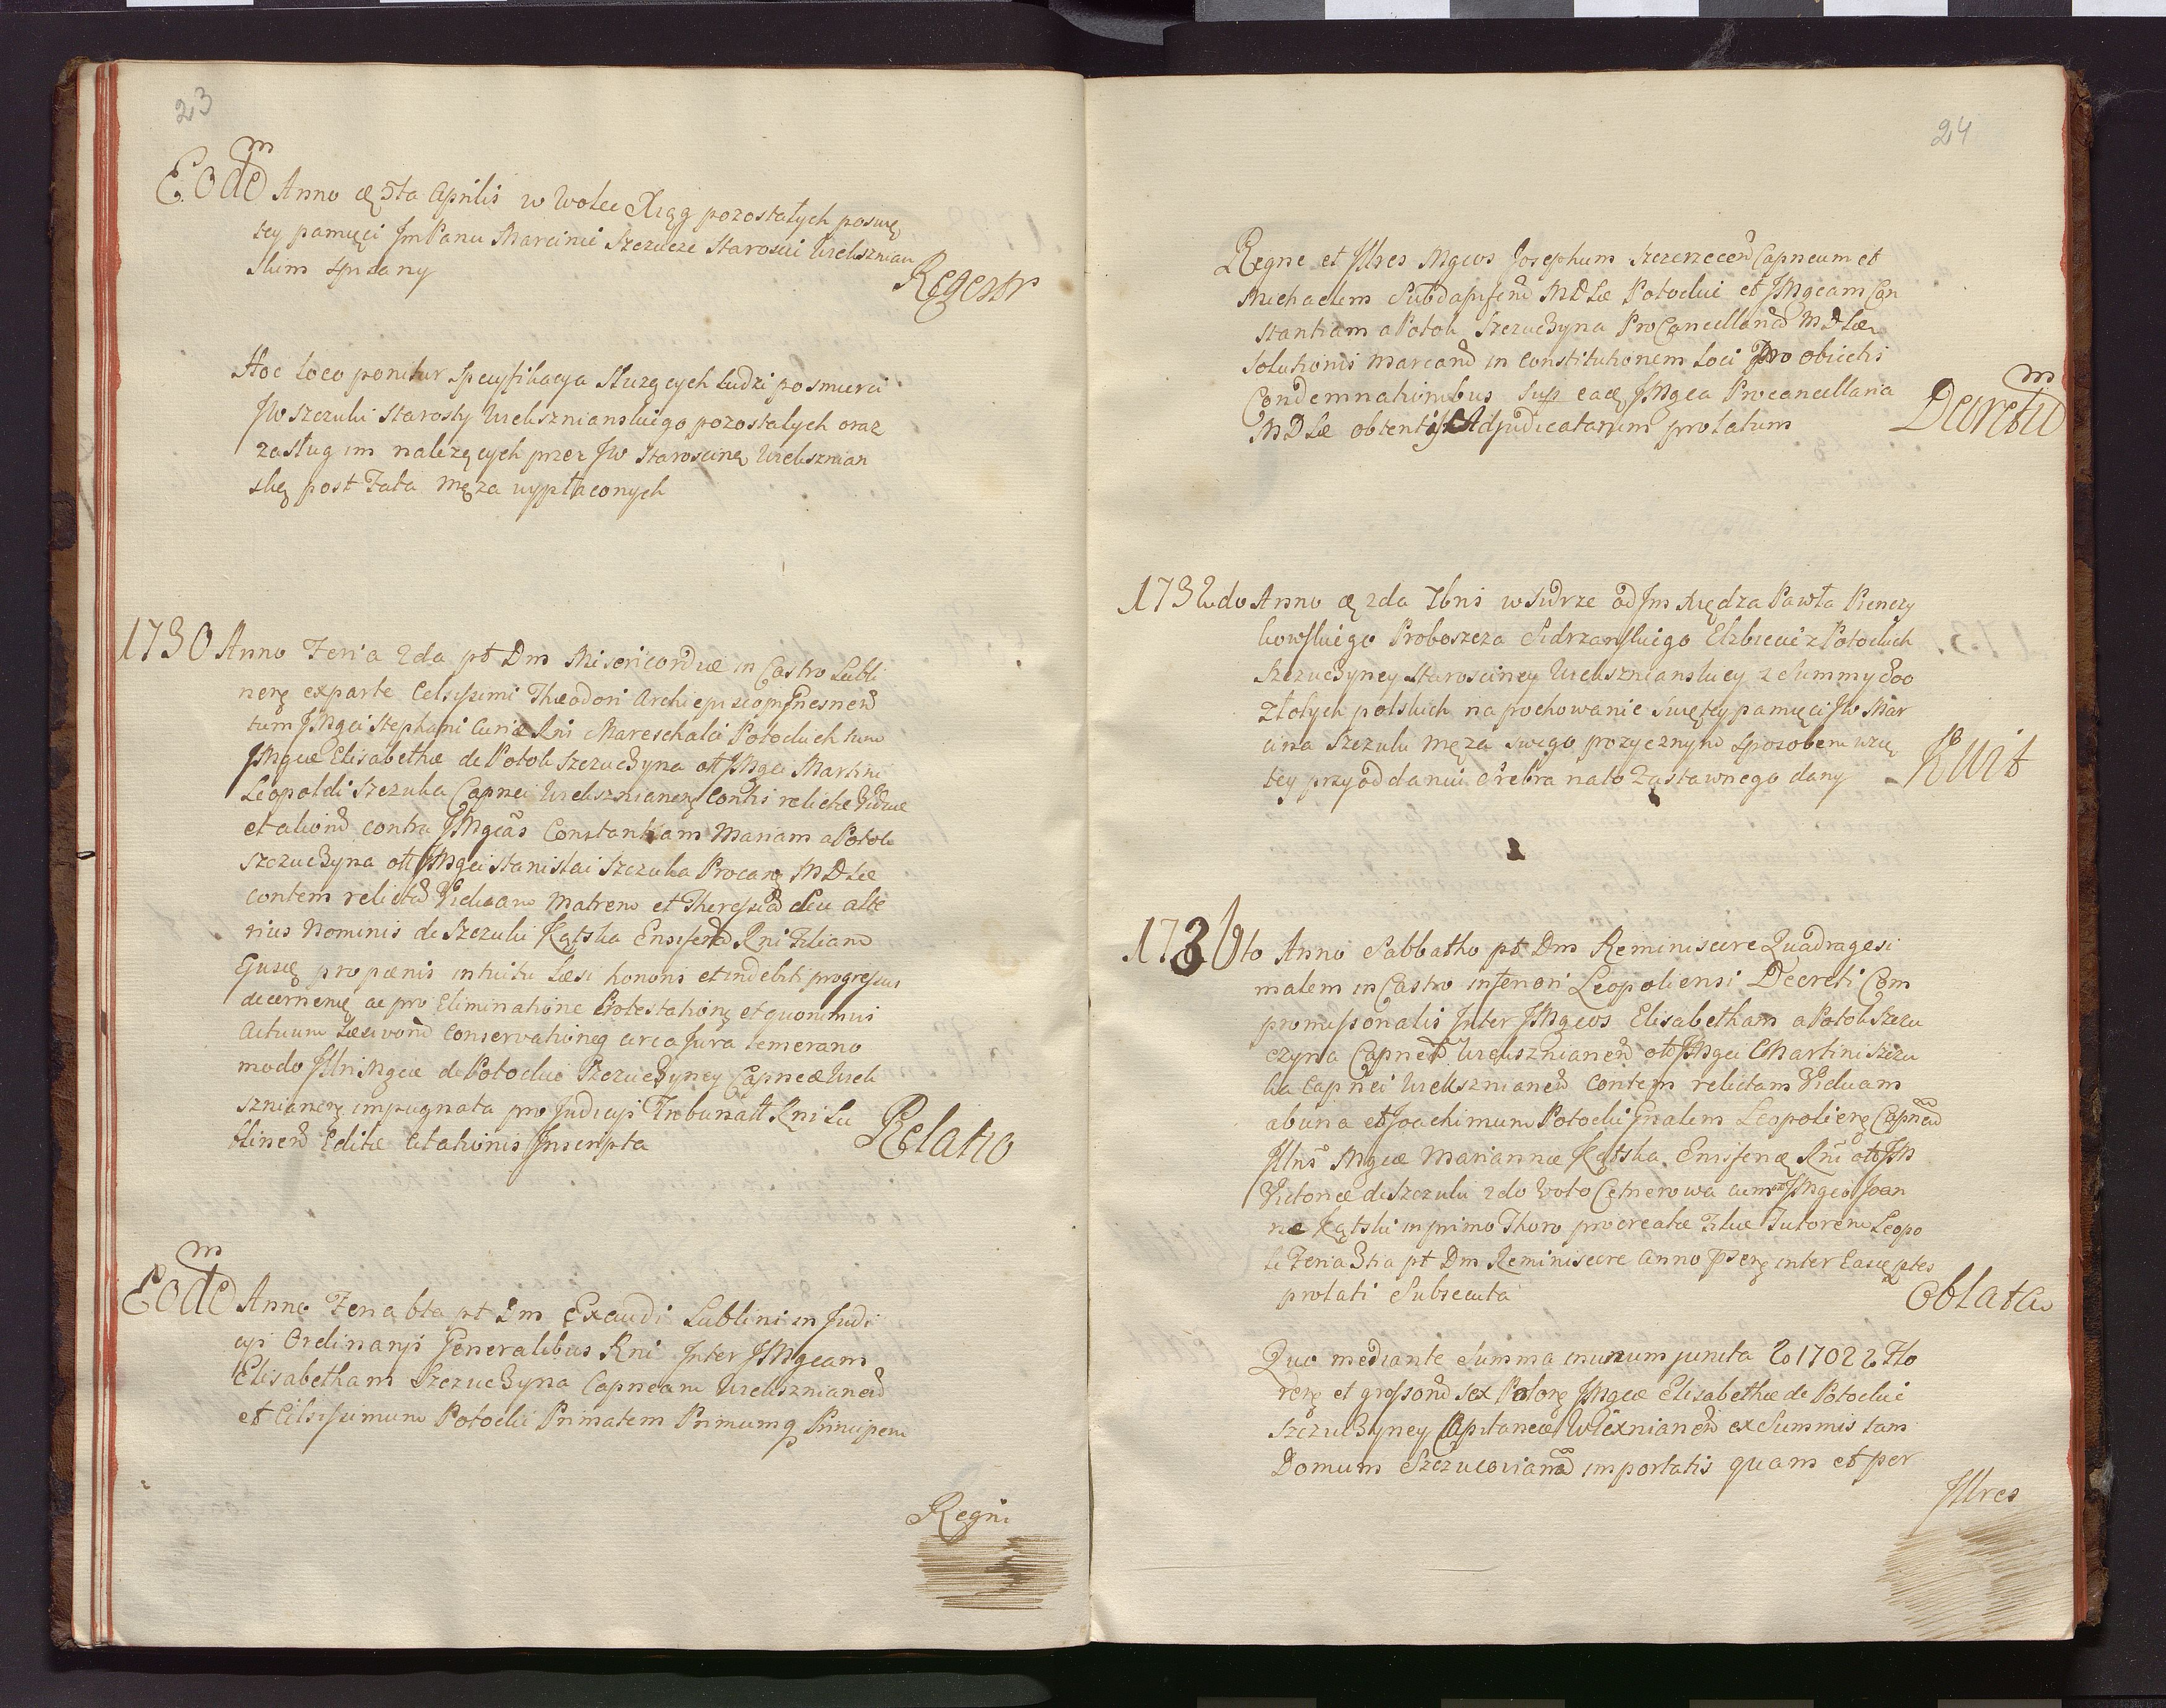 23
Eodem Anno d. 5ta Aprilis w Wolce Xiąg pozostałych po swię
tey pamięci Jm Panu Marcinie Szczuce Starosci Wieksznian
skim spisany Regestr
Hoc loco ponitur Specyfikacya Służących ludzi po smierci
JW Szczuki Starosty Wieksznianskiego pozostałych oraz
zasług im należących przez JW Starościnę Wieksznian
skę post Fata Męża wypłaconych
1730 Anno Feria 2da pt Dm Misericordiæ in Castro Lubli
neñ ex parte Celsissimi Theodori Archiepiscopi Gnesneñ
tum JMgci Stephani Curiæ Rni Mareschalci Potockich tum
JMgcæ Elisabethæ de Potok Szczuczyna olt JMgci Martini
Leopoldi Szczuka Capnei Wieksznianeñ Contis relictæ Viduæ
et alioru contra JMgcas Constantiam Mariam a Potok
Szczuczyna olt JMgci Stanislai Szczuka Procanc MDLæ
contem relictã Viduam Matrem et Theressiã seu alte
rius Nominis de Szczuki Kątska Ensiferã Rni Filiam
Ejusq pro pœnis intuitu Læsi honoris et indebiti progressus
decernenñ ac pro Eliminatione Protestationũ et quorumvis
Actuum Læsivorũ conservationeq circa Jura temerario
modo Jllris Mgcæ de Potockie Szczuczyney Capneæ Wiek
sznianeñ impugnata pro Judicys Trebunalt Rni Lu
blineñ Editæ Citationis Jnscripta Relatio
Eodem Anno Feria 6ta pt Dm Exaudi Lublini in Judi
cys Ordinarys Generalibus Rni Jnter JMgcam
Elisabetham Szczuczyna Capneam Wieksznianeñ
et Celsissimum Potocki Primatem Primumq Principem
Regni
24
Regni et Jllres Mgcos Josephum Szczerzeceñ Capneum et
Michaelem Subdapiferũ MDLæ Potockie et JMgcam Con
stantiam a Potok Szczuczyna ProCancellariã MDLæ
solutionis marcarũ in constitutionem loci Pro obiectis
Condemnationibus sup eadẽ JMgca Procancellaria
MDLæ obtentis Adjudicatarum prolatum Decretum
1732do Anno d. 2da 7bris w Sidrze od Jm Xiędza Pawła Pienczy
kowskiego Proboszcza Sidrzanskiego Elzbiecie z Potockich
Szczuczyney Starosciney Wiekszniansкiey z Summy 800
złotych polskich na pochowanie swiętey pamięci JW Mar
cina Szczuki Męża swego pozycznym sposobem wzię
tey przy oddaniu srebra na to zastawnego dany Kwit
1736to Anno Sabbatho pt Dm Reminiscere Quadragesi
malem in Castro inferiori Leopoliensi Decreti Com
promissionalis Jnter JMgcos Elisabetham a Potok Szczu
czyna Capneã Wieksznianeñ olt JMgci Martini Szczu
ka Capnei Wieksznianeñ contem relictam Viduam
ab una et Joachimum Potocki Gnalem Leopolieñ Capneũ
Jllris Mgcæ Mariannæ Kątska Ensiferiæ Rni olt JM
Victoriæ de Szczuki 2do voto Cetnerowa cum JMgco Joan
ne Kątski in primo Thoro procreatæ Filiæ Tutorem Leopo
li Feria 3tia pt Dm Reminiscere anno pseñ inter Easq ptes
prolati Subsecuta Oblata
Quo mediante Summa inunum juncta 217022 Flo
renũ et grossorũ sex Polonũ JMgcæ Elisabethæ de Potockie
Szczuczyney Capitaneæ Wiexnianeñ ex Summis tam
Domum Szczucovianã importatis quam et per
Jllres